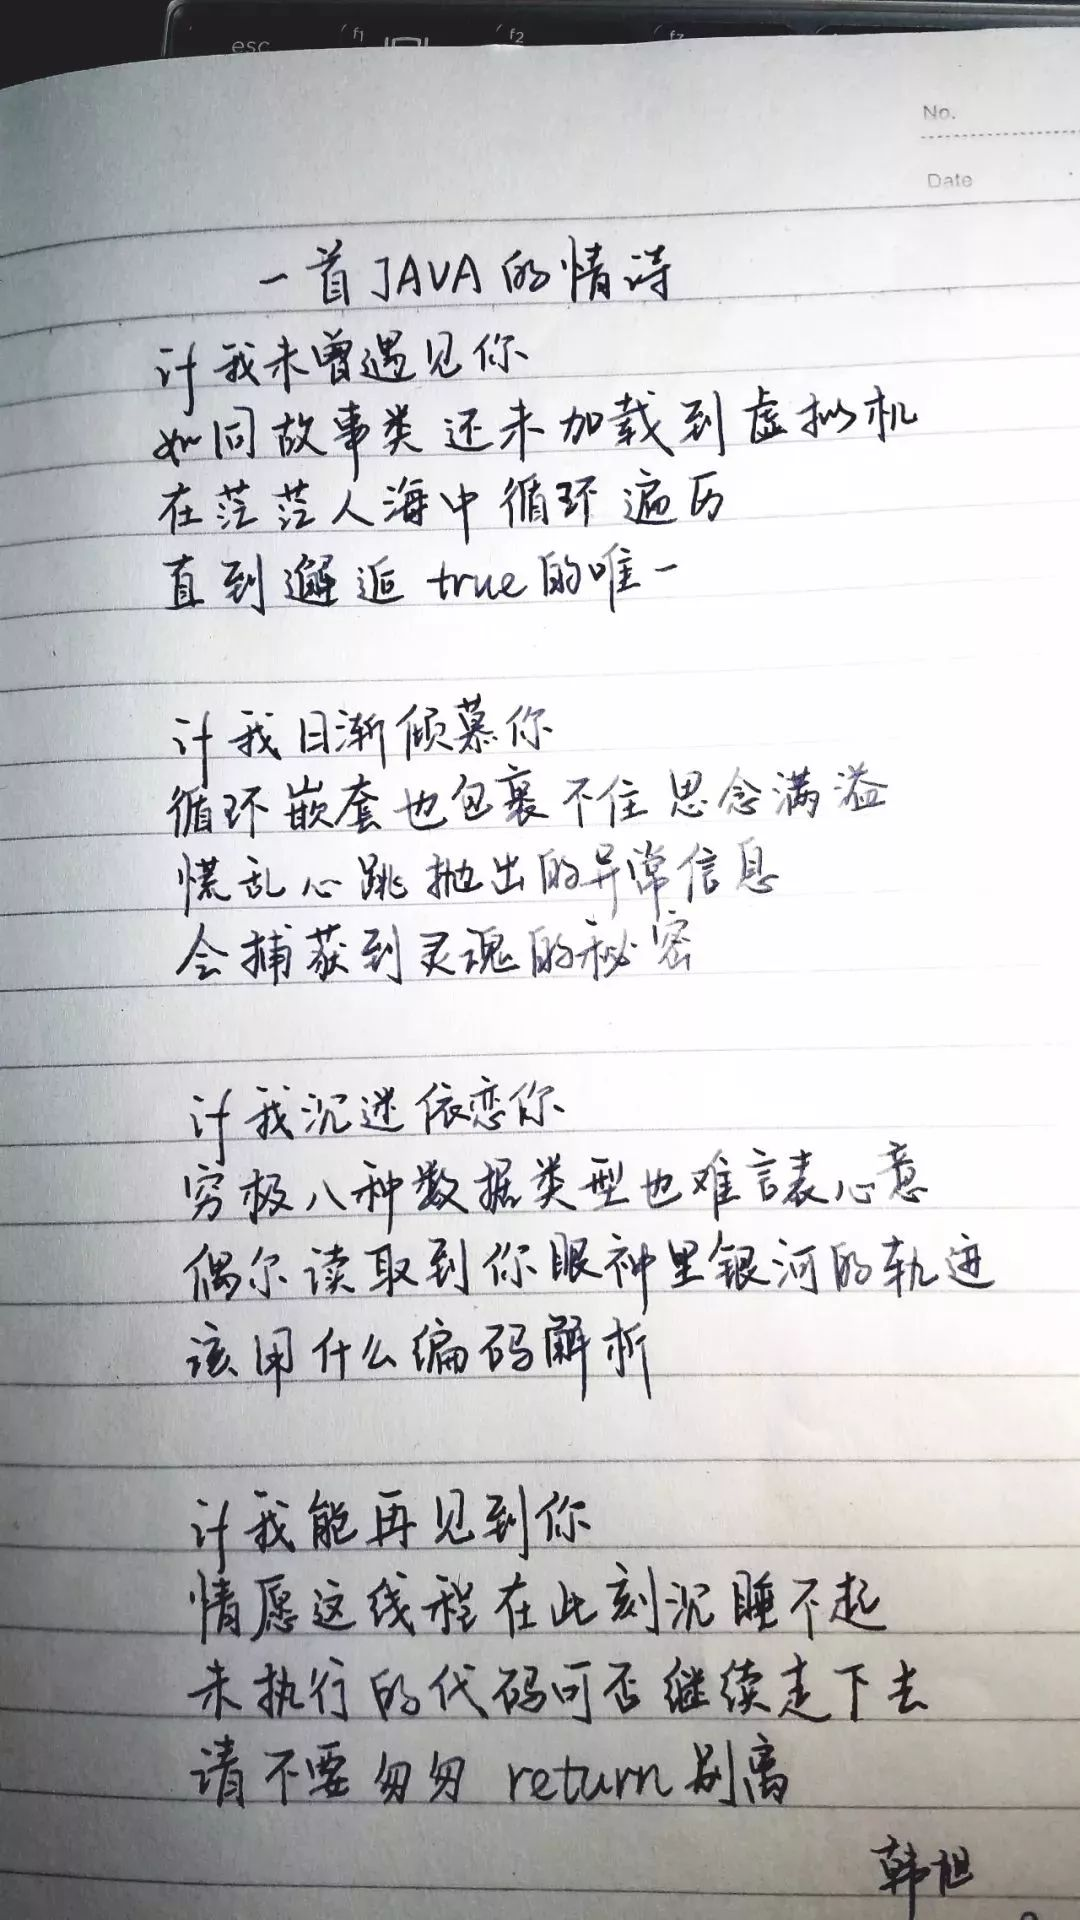 esc f1 f2
No.
Date
一首JAVA的情诗
计我未曾遇见你
如同故事类还未加载到虚拟机
在茫茫人海中循环遍历
直到邂逅true的唯一
计我日渐倾慕你
循环嵌套也包裹不住思念满溢
慌乱心跳抛出的异常信息
会捕获到灵魂的秘密
计我沉迷依恋你
穷极八种数据类型也难言表心意
偶尔读取到你眼神里银河的轨迹
该用什么编码解析
计我能再见到你
情愿这线程在此刻沉睡不起
未执行的代码可否继续走下去
请不要匆匆return别离
韩旭